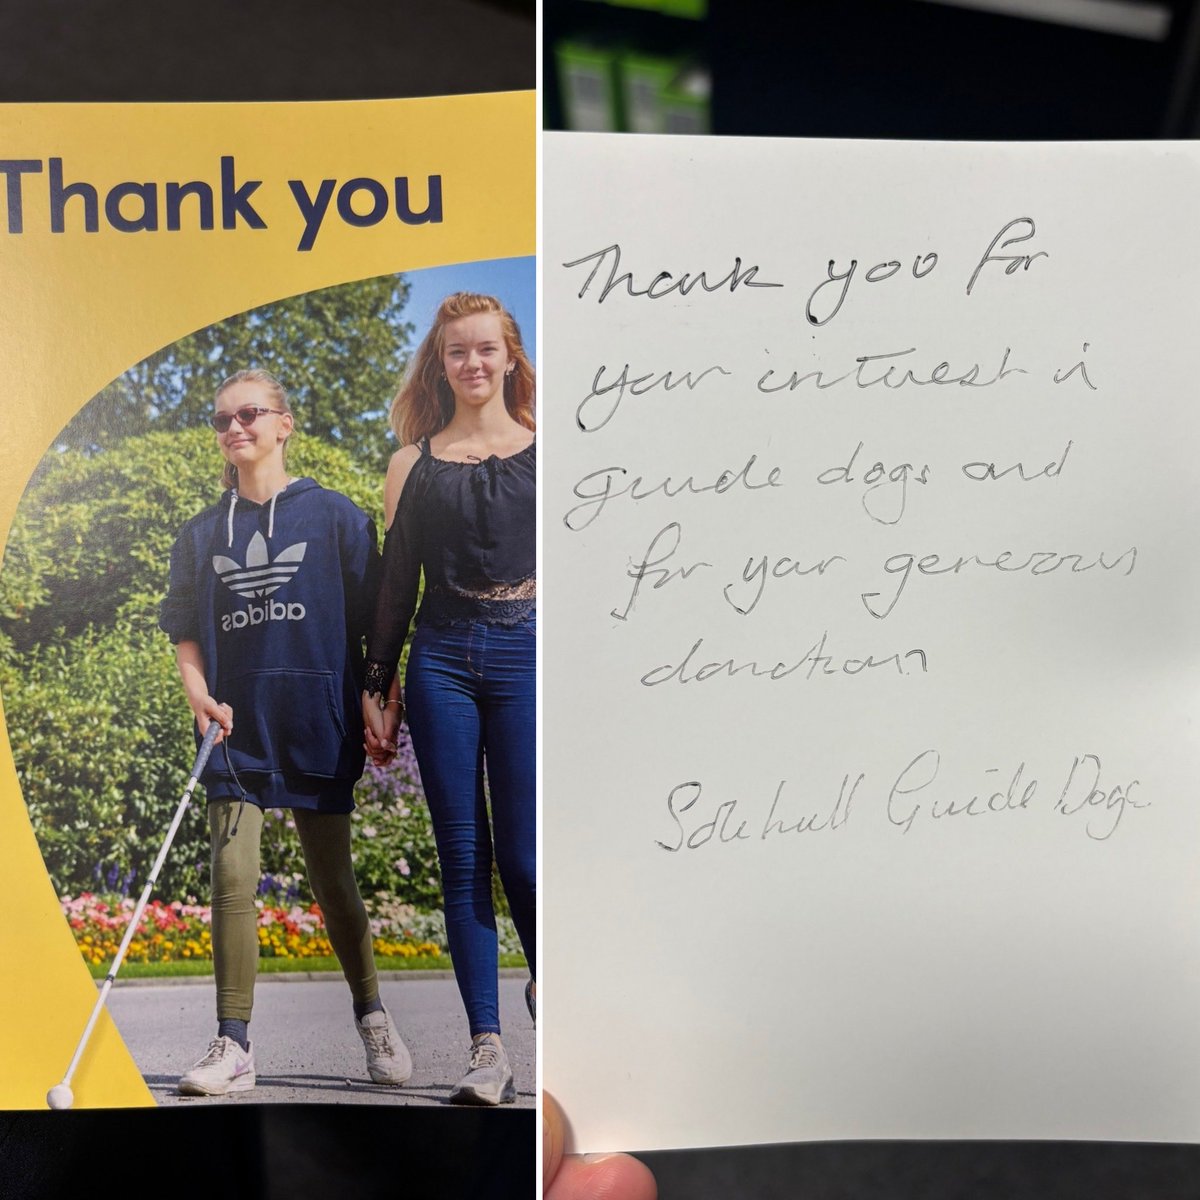 Thank you
adidas
Thank you for
your interest in
guide dogs and
for your generous
donation
Solihull Guide Dogs